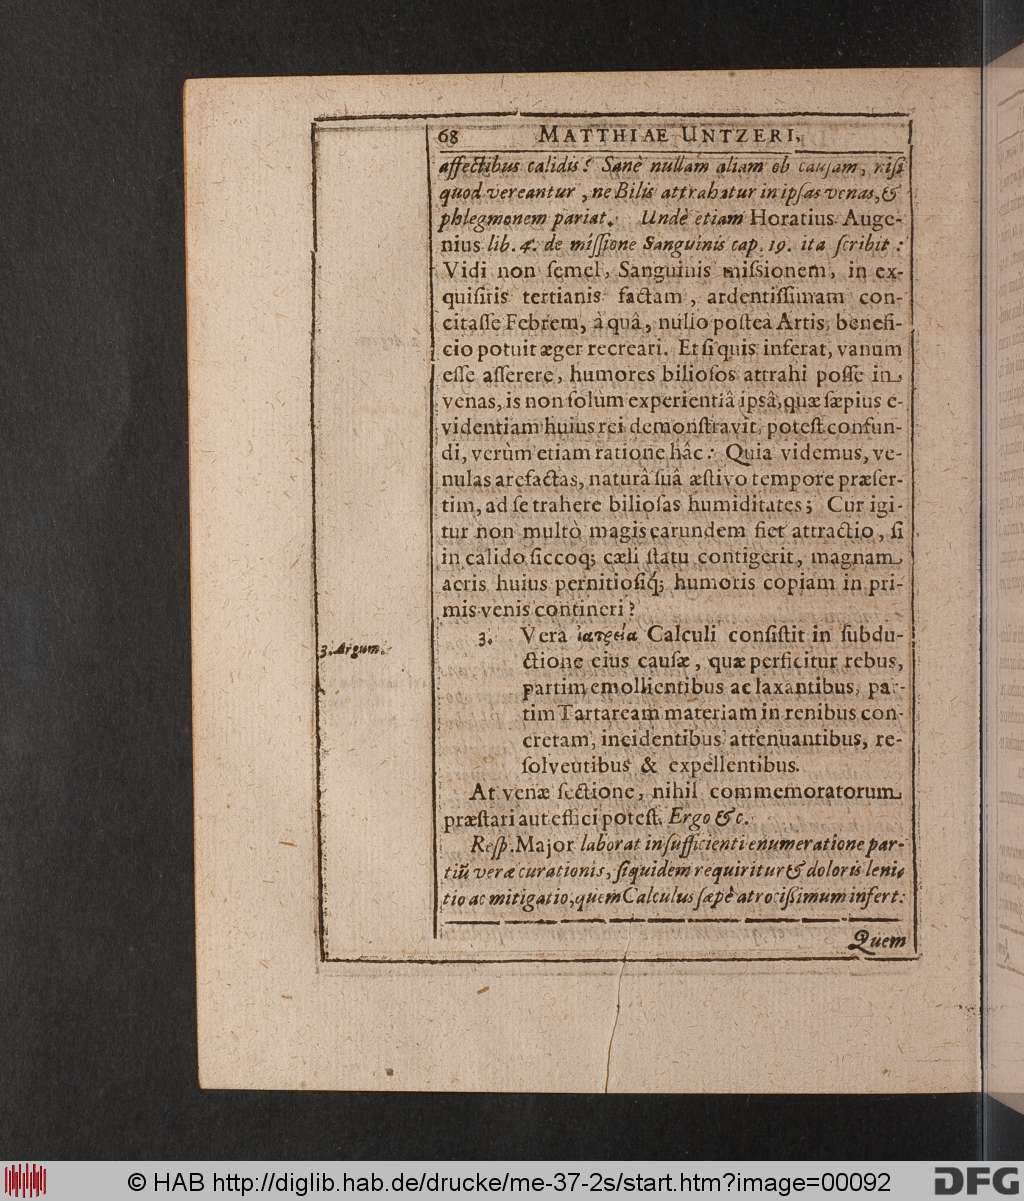 68 MATTHIAE UNTZERI,
affectibus calidis? Sanè nullam aliam ob cauſam, niſi
quod vereantur, ne Bilis attrahatur in ipſas venas, &
phlegmonem pariat. Undè etiam Horatius Auge-
nius lib. 4. de miſſione Sanguinis cap. 19. ita ſcribit:
Vidi non ſemel, Sanguinis miſsionem, in ex-
quiſitis tertianis factam, ardentiſſimam con-
citaſſe Febrem, à quâ, nullo poſtea Artis, benefi-
cio potuit æger recreari. Et ſi quis inferat, vanum
eſſe aſſerere, humores bilioſos attrahi poſſe in
venas, is non ſolum experientiâ ipsâ, quæ ſæpius e-
videntiam huius rei demonſtravit, poteſt confun-
di, verùm etiam ratione hâc: Quia videmus, ve-
nulas arefactas, naturâ ſuâ æſtivo tempore præſer-
tim, ad ſe trahere bilioſas humiditates; Cur igi-
tur non multò magis earundem fiet attractio, ſi
in calido ſiccoq; cæli ſtatu contigerit, magnam
aeris huius pernitioſiq́; humoris copiam in pri-
mis venis contineri?
3. Argum.
3. Vera ἰατρεία Calculi conſiſtit in ſubdu-
ctione eius cauſæ, quæ perficitur rebus,
partim emollientibus ac laxantibus, par-
tim Tartaream materiam in renibus con-
cretam, incidentibus attenuantibus, re-
ſolventibus & expellentibus.
At venæ ſectione, nihil commemoratorum
præſtari aut effici poteſt, Ergo &c.
Reſp. Major laborat inſufficienti enumeratione par-
tiū veræ curationis, ſiquidem requiritur & doloris leni-
tio ac mitigatio, quem Calculus ſæpè atrociſſimum infert:
Quem
© HAB http://diglib.hab.de/drucke/me-37-2s/start.htm?image=00092
DFG